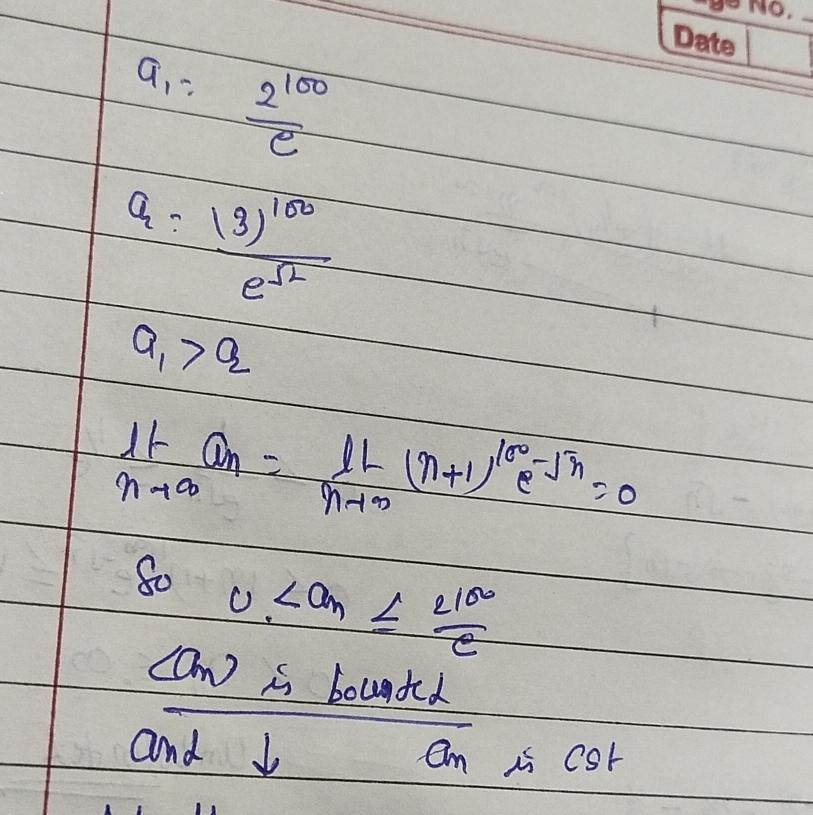 No.
Date
a₁ = 2^100 / e
a₂ = (3)^100 / e^√2
a₁ > a₂
lt n→∞ an = lt n→∞ (n+1)^100 e^-√n = 0
So 0 < an ≤ 2^100 / e
<an> is bounded
and ↓ an is cgt